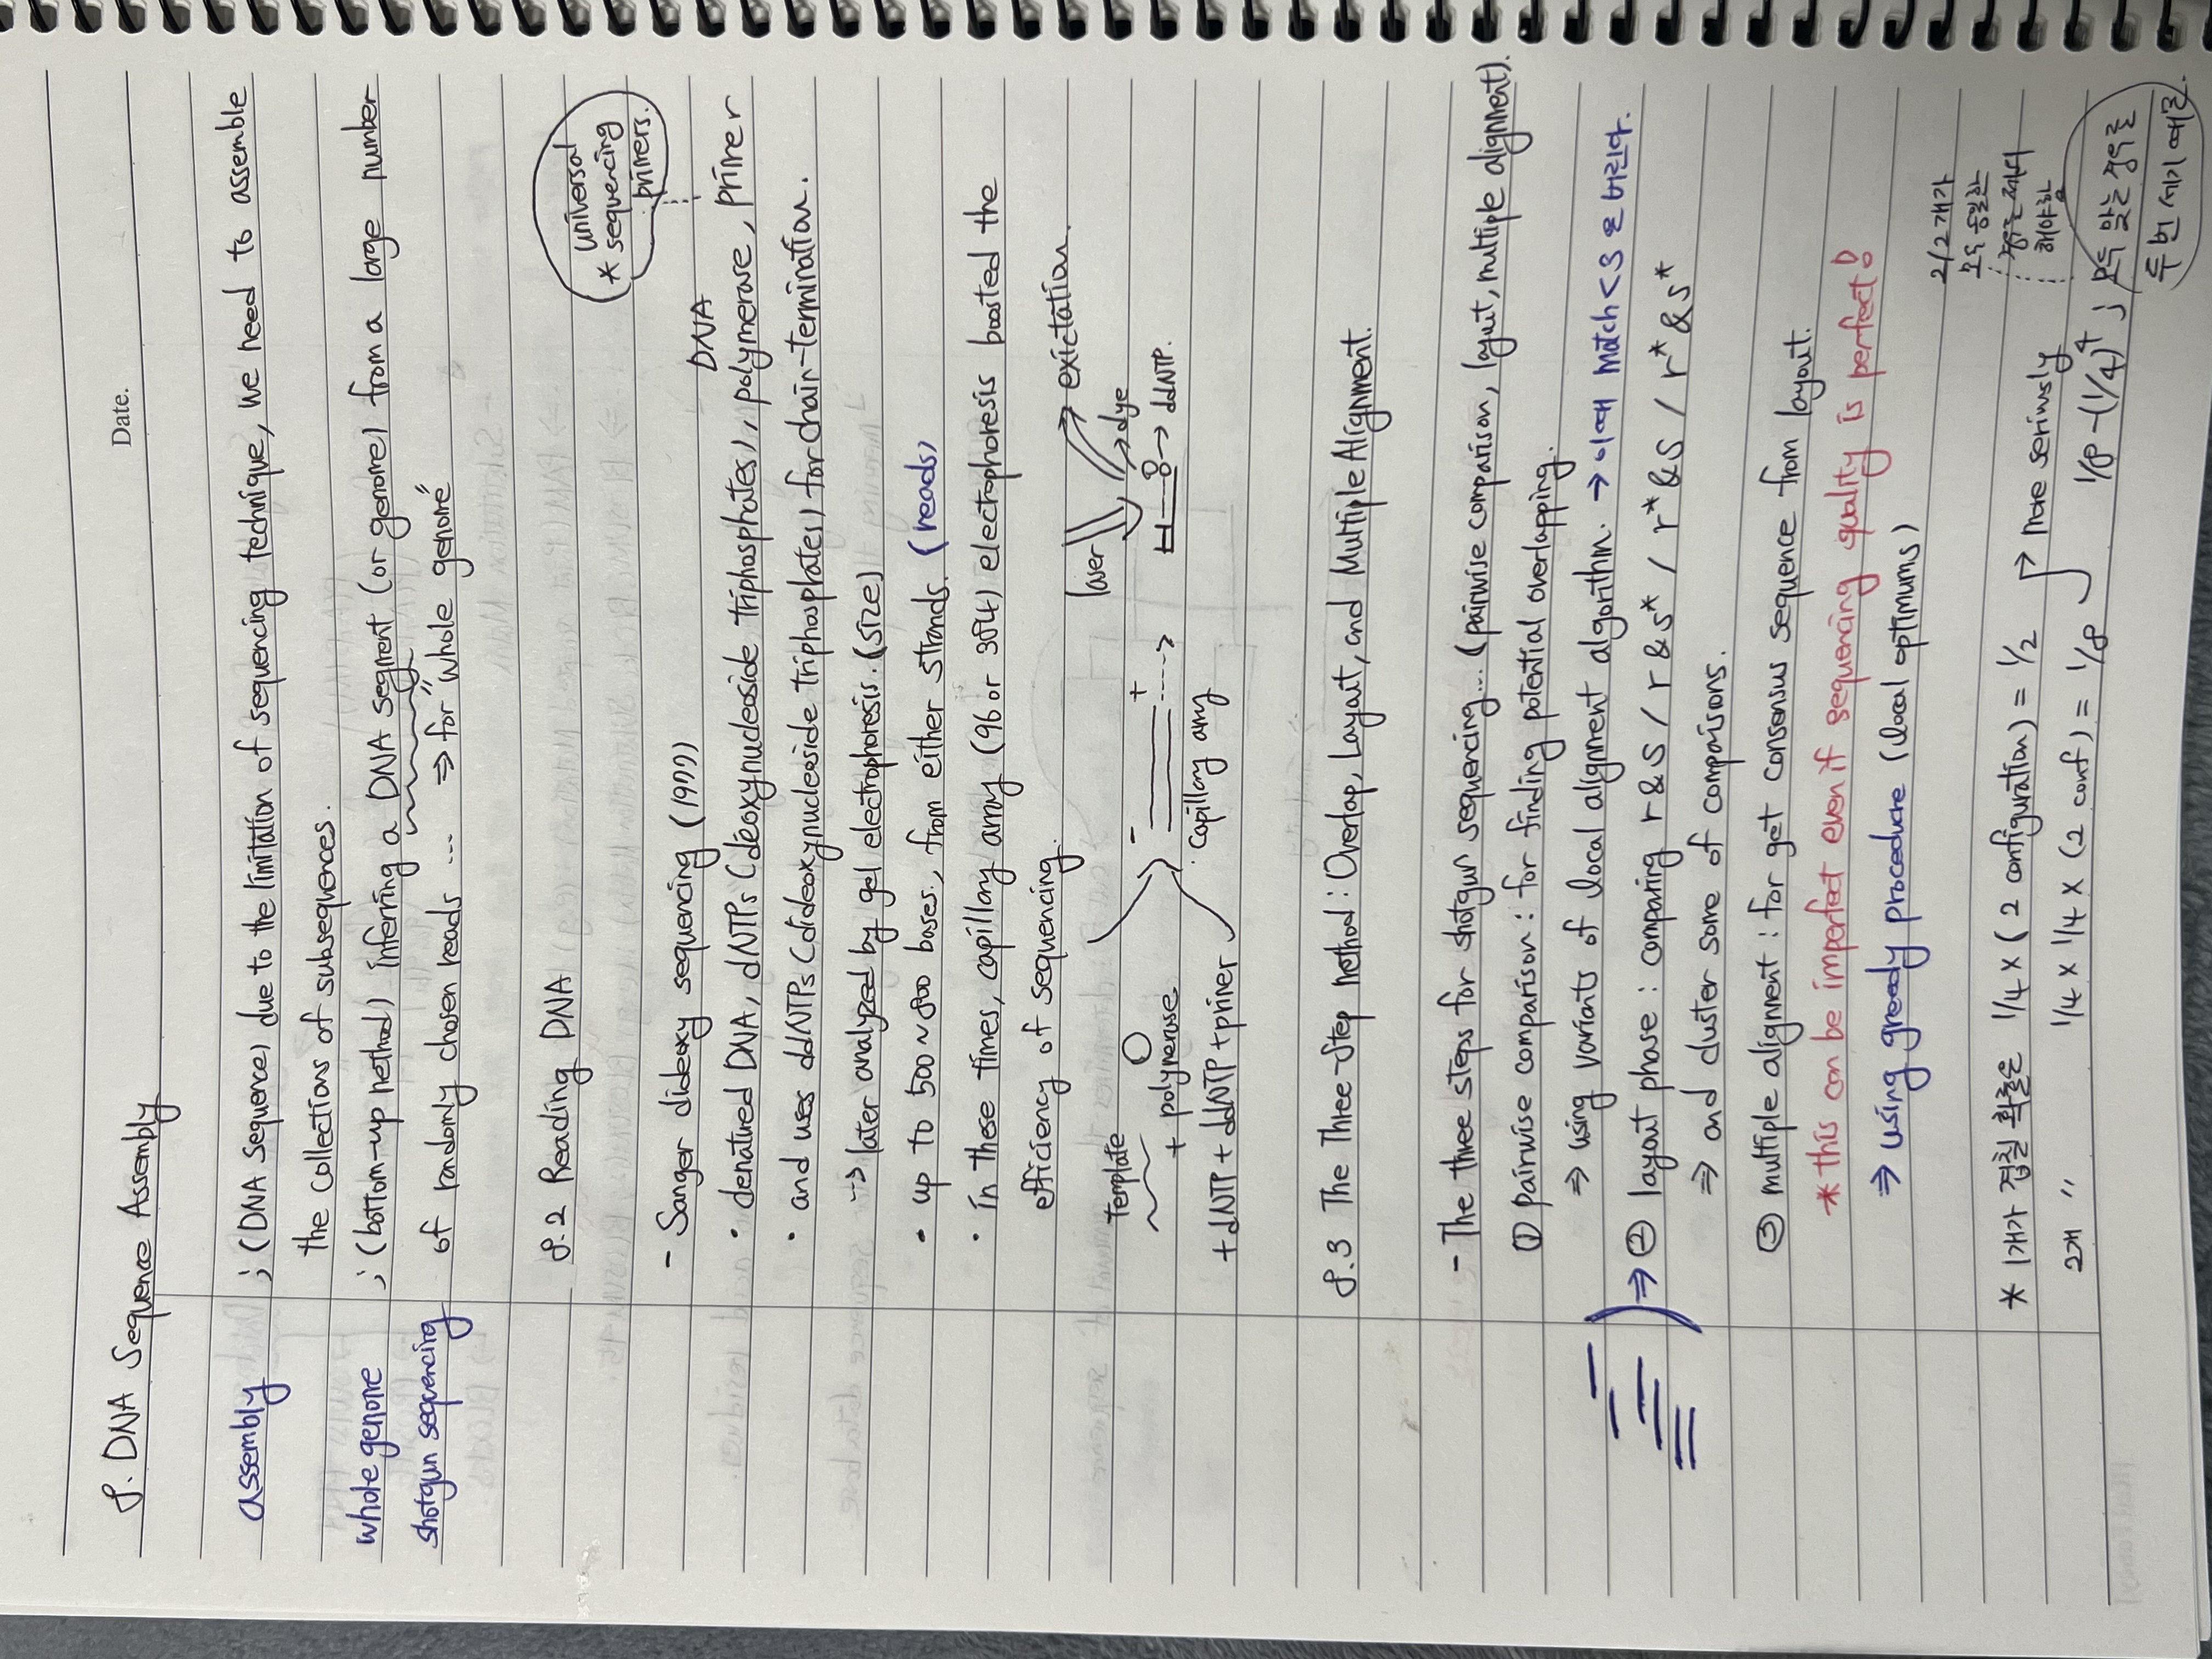 Date.
8. DNA Sequence Assembly
assembly ; (DNA sequence) due to the limitation of sequencing technique, we need to assemble
the collections of subsequences.
whole genome ; (bottom-up method) inferring a DNA segment (or genome) from a large number
shotgun sequencing of randomly chosen reads ... ⇒ for "whole genome"
8.2 Reading DNA
* universal
sequencing
primers.
- Sanger dideoxy sequencing (1977)
DNA
• denatured DNA, dNTPs (deoxynucleoside triphosphates), polymerase, primer
• and uses ddNTPs (dideoxynucleoside triphosphates) for chain-termination.
→ later analyzed by gel electrophoresis. (size)
• up to 500~800 bases, from either strands. (reads)
• In these times, capillary array (96 or 384) electrophoresis boosted the
efficiency of sequencing.
template
+ polymerase
+ dNTP + ddNTP + primer
- +
capillary array
laser
exictation.
→ dye
→ ddNTP.
8.3 The Three-Step method: Overlap, Layout, and Multiple Alignment.
- The three steps for shotgun sequencing... (pairwise comparison, layout, multiple alignment).
① pairwise comparison : for finding potential overlapping.
⇒ using variants of local alignment algorithm. → 이때 match < S 은 버린다.
⇒ ② layout phase : comparing r & s / r & s* / r* & s / r* & s*
⇒ and cluster some of comparisons.
③ multiple alignment : for get consensus sequence from layout.
* this can be imperfect even if sequencing quality is perfect!
⇒ using greedy procedure (local optimums)
* 1개가 겹칠 확률은 1/4 × (2 configuration) = 1/2 → more seriously
2개 " 1/4 × 1/4 × (2 conf) = 1/8
1/8 - (1/4)⁴ ;
2/2개가
모두 동일한
경우는 제외
해야함
모두 맞는 경우를
두 번 세기 때문.